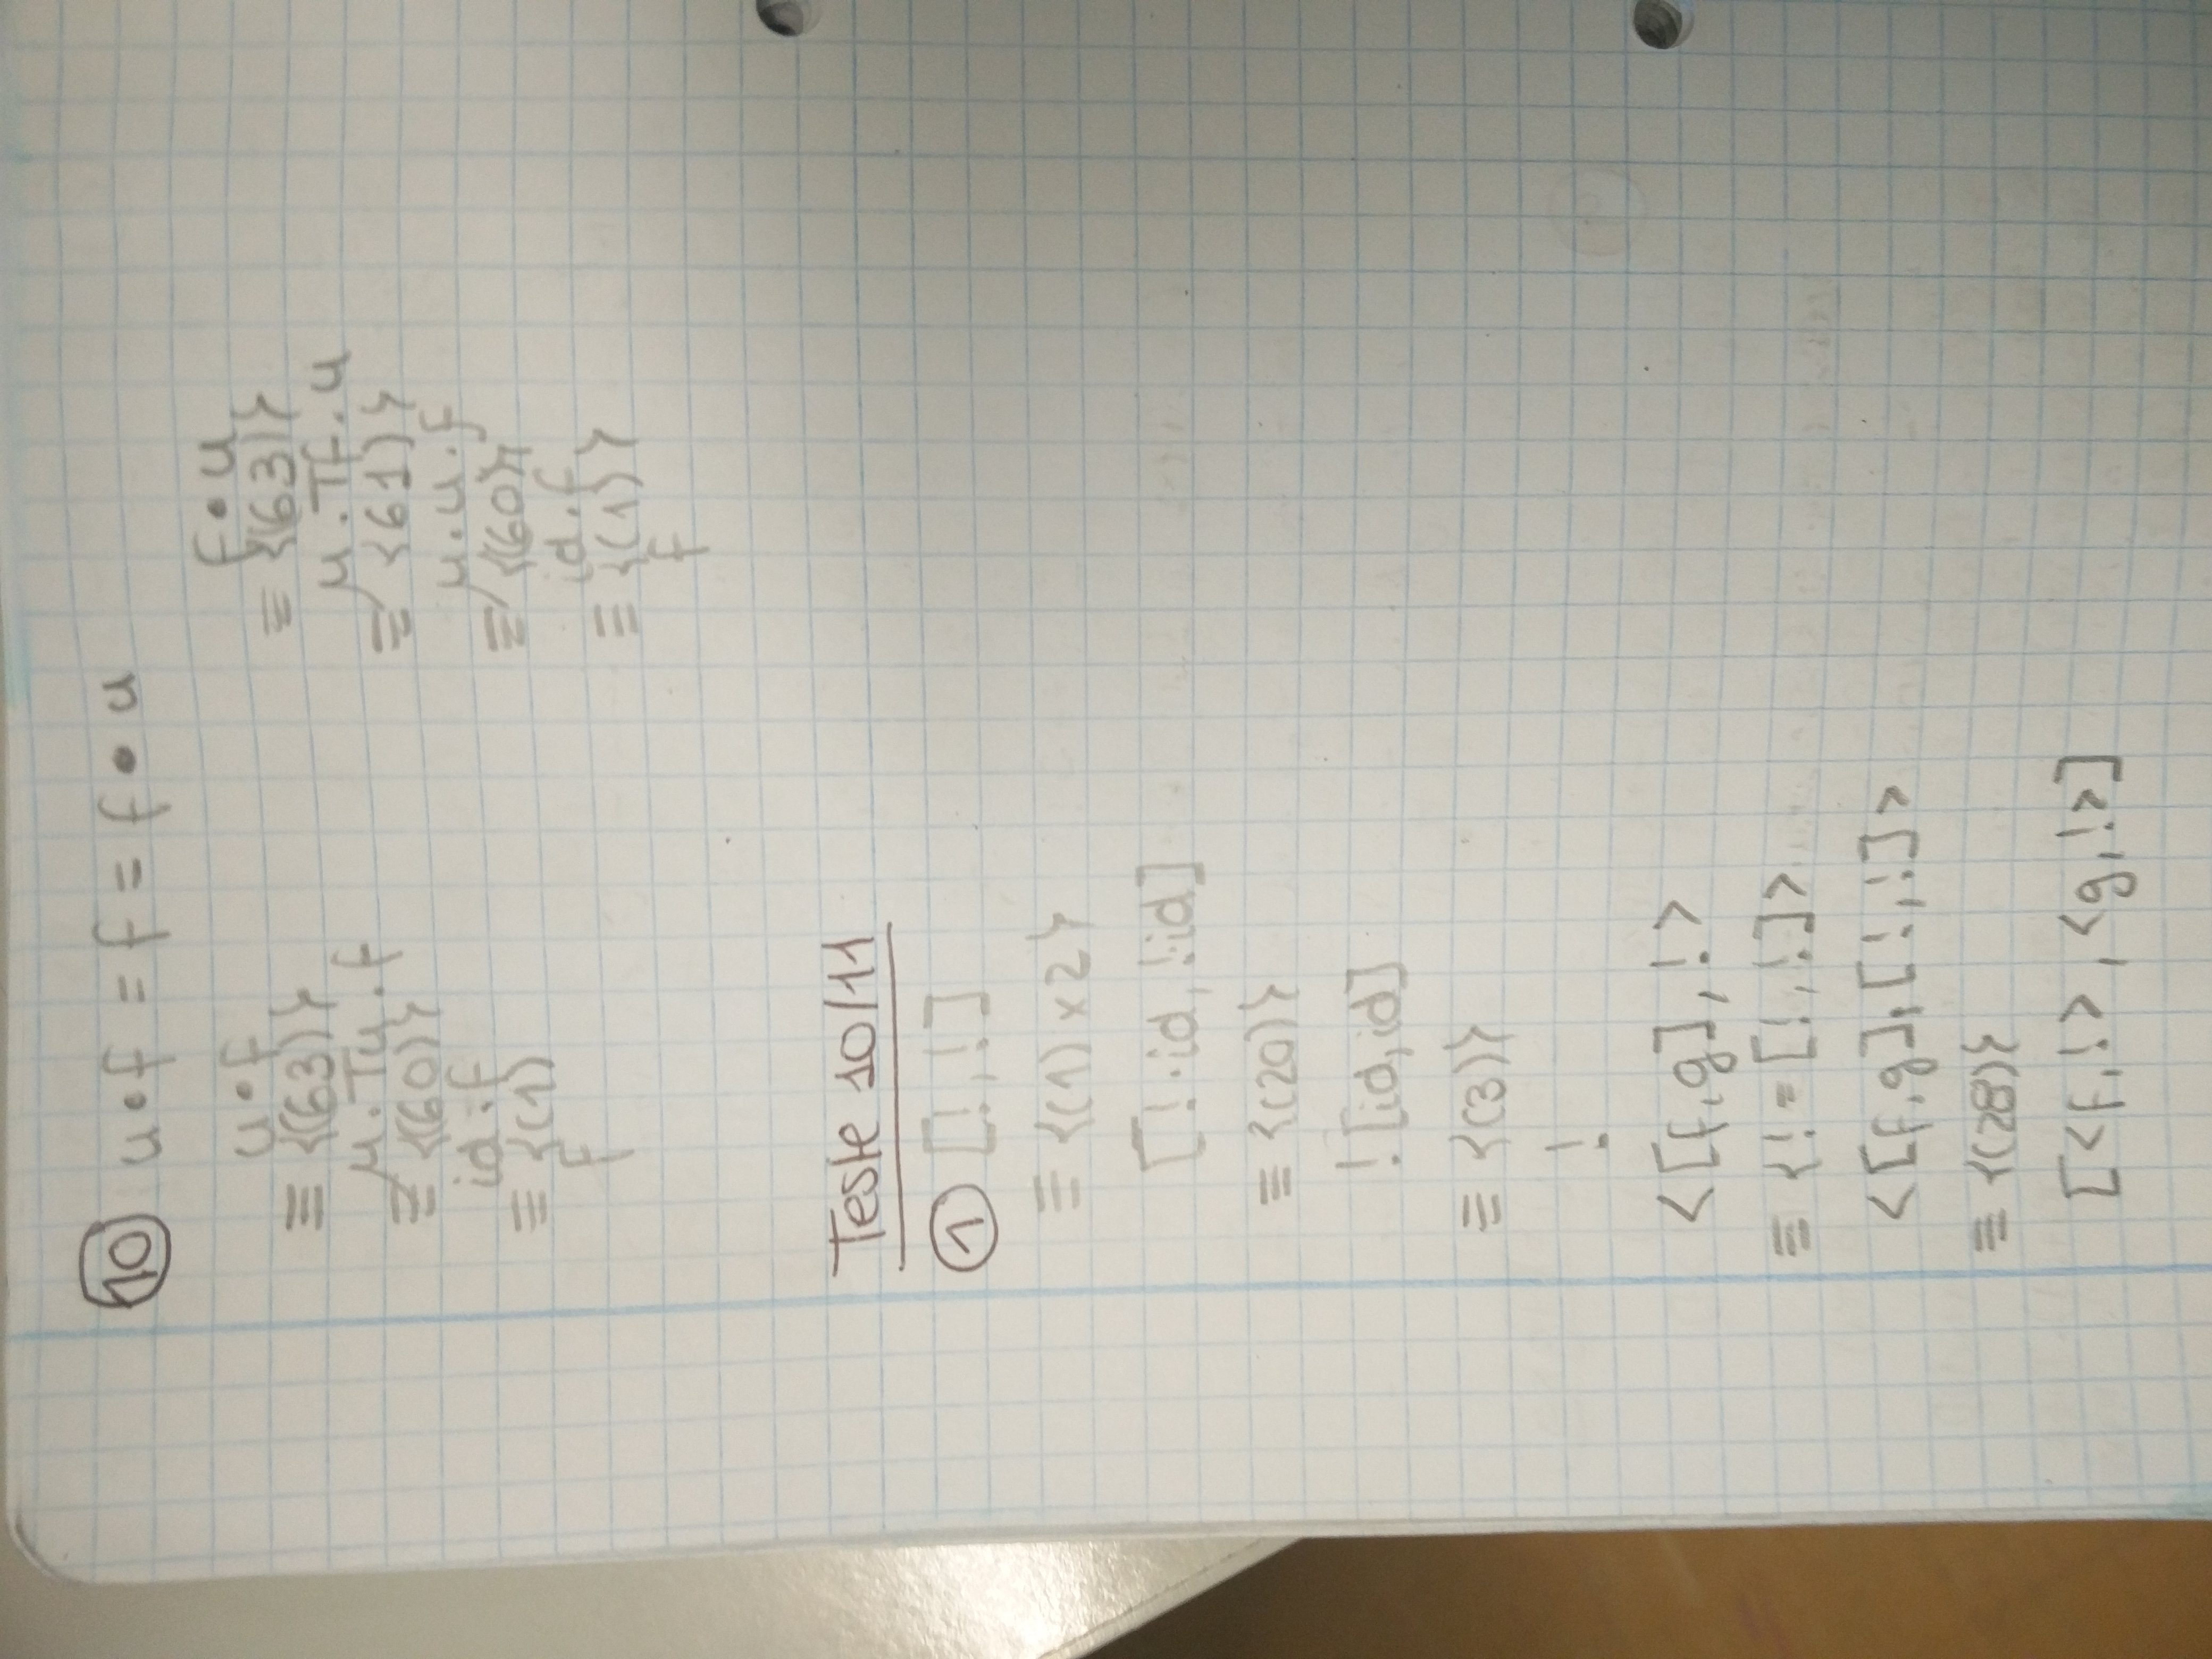 10 u•f = f = f • u
u•f
≡ {(63)}
μ.Tu.f
≡ {(60)}
id.f
≡ {(1)
f
f•u
≡ {(63)}
μ.Tf.u
≡ {61)}
μ.u.f
≡ {(60)}
id.f
≡ {(1)}
f
Teste 10/11
1 [!,!]
≡ {(1) x2}
[!·id, !·id]
≡ {(20)}
! [id,id]
≡ {(3)}
!
<[f,g], !>
≡ {! = [!,!]>
<[f,g],[!,!]>
≡ {(28)}
[<f,!>, <g,!>]